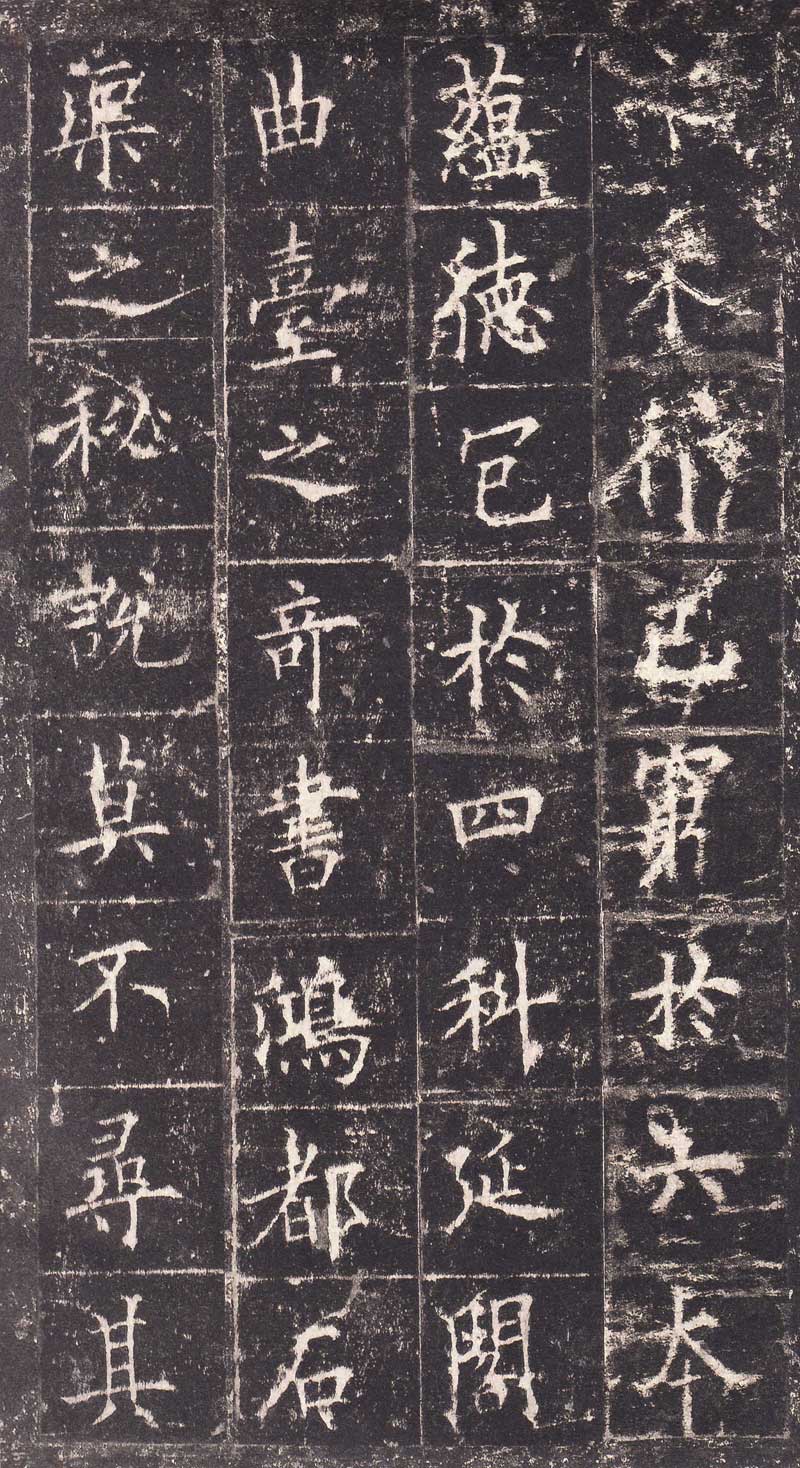 術已窮於六夲
蘊德包於四科延閣
曲臺之奇書鴻都石
渠之秘說莫不尋其